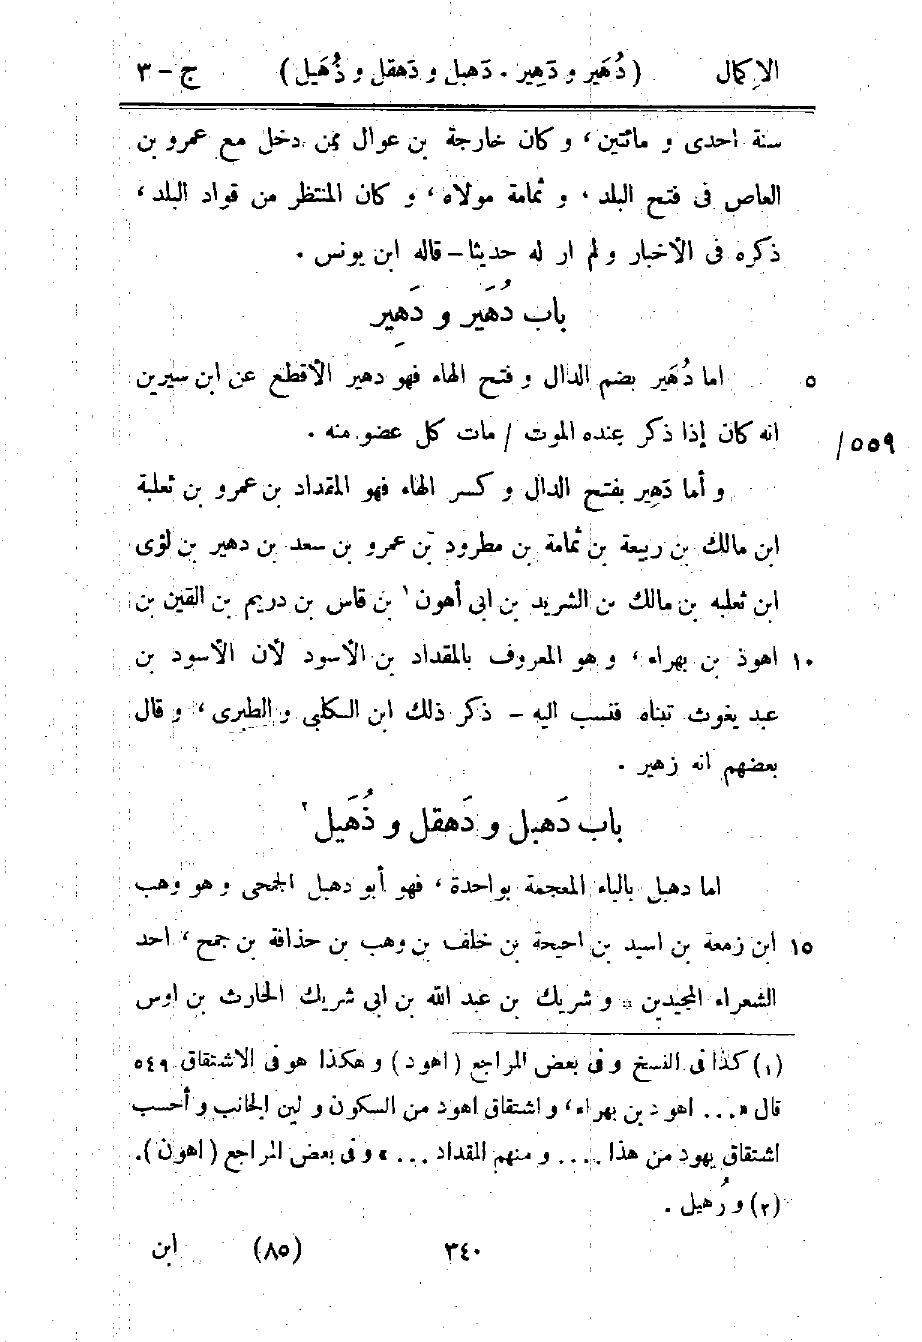 الإكمال (دُهَير و دَهِير . دَهبل و دَهقل و ذُهَيل) ج - ٣
سنة احدى و مائتين، و كان خارجة بن عوال ممن دخل مع عمرو بن
العاص فى فتح البلد، و ثمامة مولاه، و كان المنتظر من قواد البلد،
ذكره فى الأخبار و لم ار له حديثا - قاله ابن يونس .
باب دُهَير و دَهِير
٥ اما دُهَير بضم الدال و فتح الهاء فهو دهير الأقطع عن ابن سيرين
انه كان إذا ذكر عنده الموت / مات كل عضو منه . /٥٥٩
و أما دَهِير بفتح الدال و كسر الهاء فهو المقداد بن عمرو بن ثعلبة
ابن مالك بن ربيعة بن ثمامة بن مطرود بن عمرو بن سعد بن دهير بن لؤى
ابن ثعلبه بن مالك بن الشريد بن ابى أهون١ بن قاس بن دريم بن القين بن
١٠ اهوذ بن بهراء، و هو المعروف بالمقداد بن الأسود لأن الأسود بن
عبد يغوث تبناه فنسب اليه - ذكر ذلك ابن الكلبى و الطبرى، و قال
بعضهم انه زهير .
باب دَهبل و دَهقل و ذُهَيل٢
اما دهبل بالباء المعجمة بواحدة، فهو أبو دهبل الجمحى و هو وهب
١٥ ابن زمعة بن اسيد بن احيحة بن خلف بن وهب بن حذافة بن جمح، احد
الشعراء المجيدين * و شريك بن عبد الله بن ابى شريك الحارث بن اوس
(١) كذا فى النسخ و فى بعض المراجع (اهود) و هكذا هو فى الاشتقاق ٥٤٩
قال «... اهود بن بهراء، و اشتقاق اهود من السكون و لين الجانب و أحسب
اشتقاق يهود من هذا .... و منهم المقداد ...» و فى بعض المراجع (اهون).
(٢) و زُهيل .
٣٤٠ (٨٥) ابن